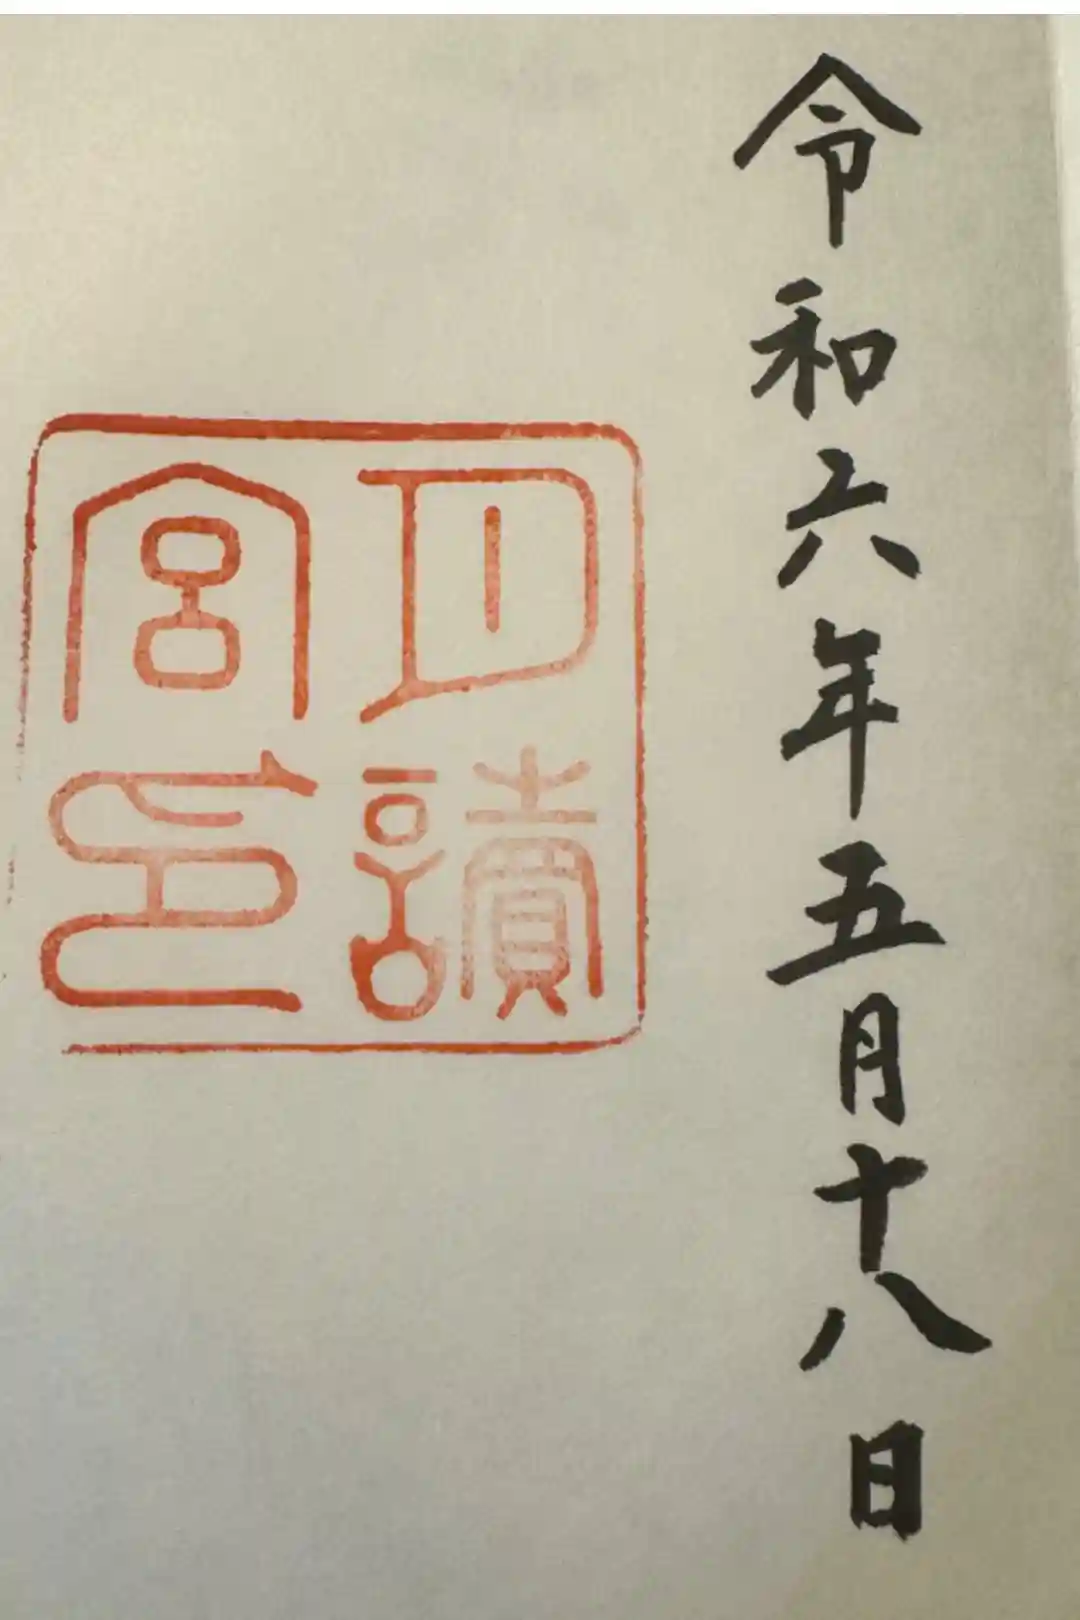 令和六年五月十八日
月讀
宮印